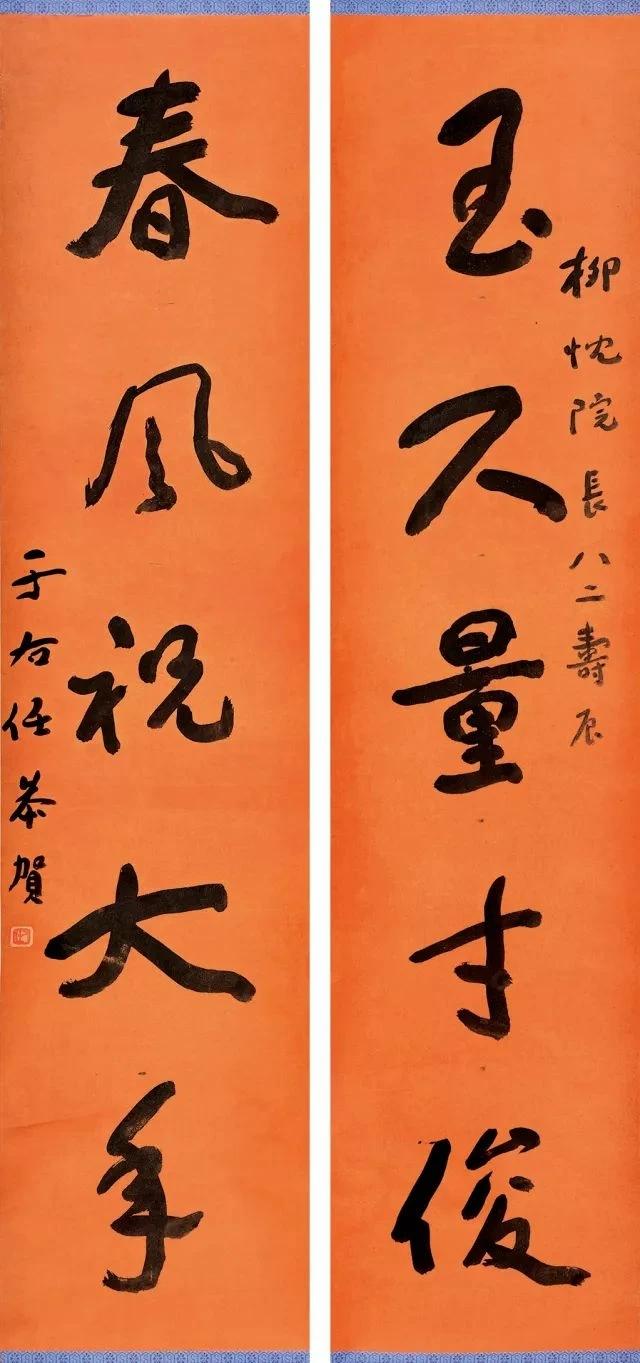 柳忱院長八二壽辰
玉尺量才俊
春風祝大年
于右任恭賀